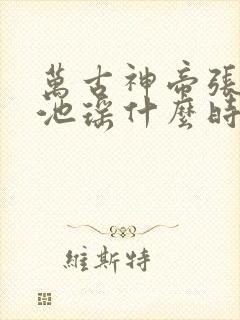 萬古神帝張
池瑤什麼時
維斯特